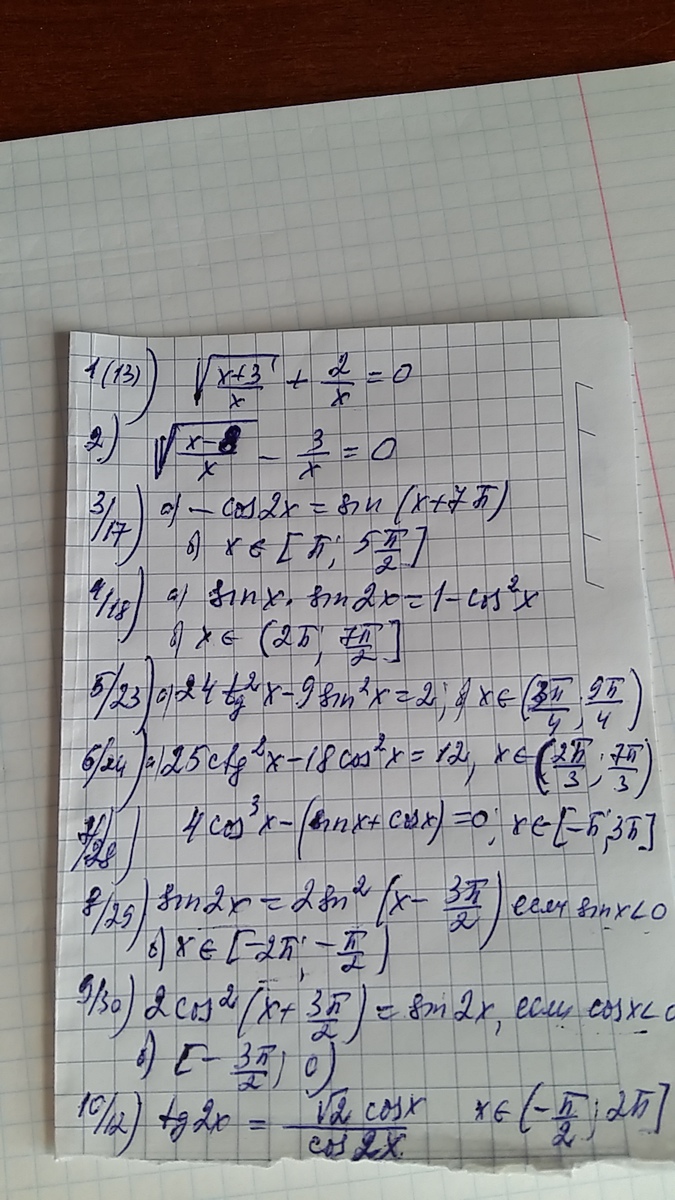 1(13) √((x+3)/x) + 2/x = 0
2) √((x-8)/x) - 3/x = 0
3/17) а) - cos2x = sin (x+7π)
б) x ∈ [π; 5π/2]
4/18) а) sinx · sin2x = 1 - cos²x
б) x ∈ (2π; 7π/2]
5/23) а) 24 tg²x - 9 sin²x = 2; б) x ∈ (3π/4; 9π/4)
6/24) а) 25 ctg²x - 18 cos²x = 12, x ∈ (2π/3; 7π/3)
7/28) 4cos³x - (sinx + cosx) = 0; x ∈ [-π; 3π]
8/29) sin2x = 2sin² (x - 3π/2) если sinx<0
б) x ∈ [-2π; -π/2)
9/30) 2cos² (x + 3π/2) = sin2x, если cosx<0
б) [-3π/2; 0)
10/12) tg2x = √2 cosx / cos2x x ∈ (-π/2; 2π]